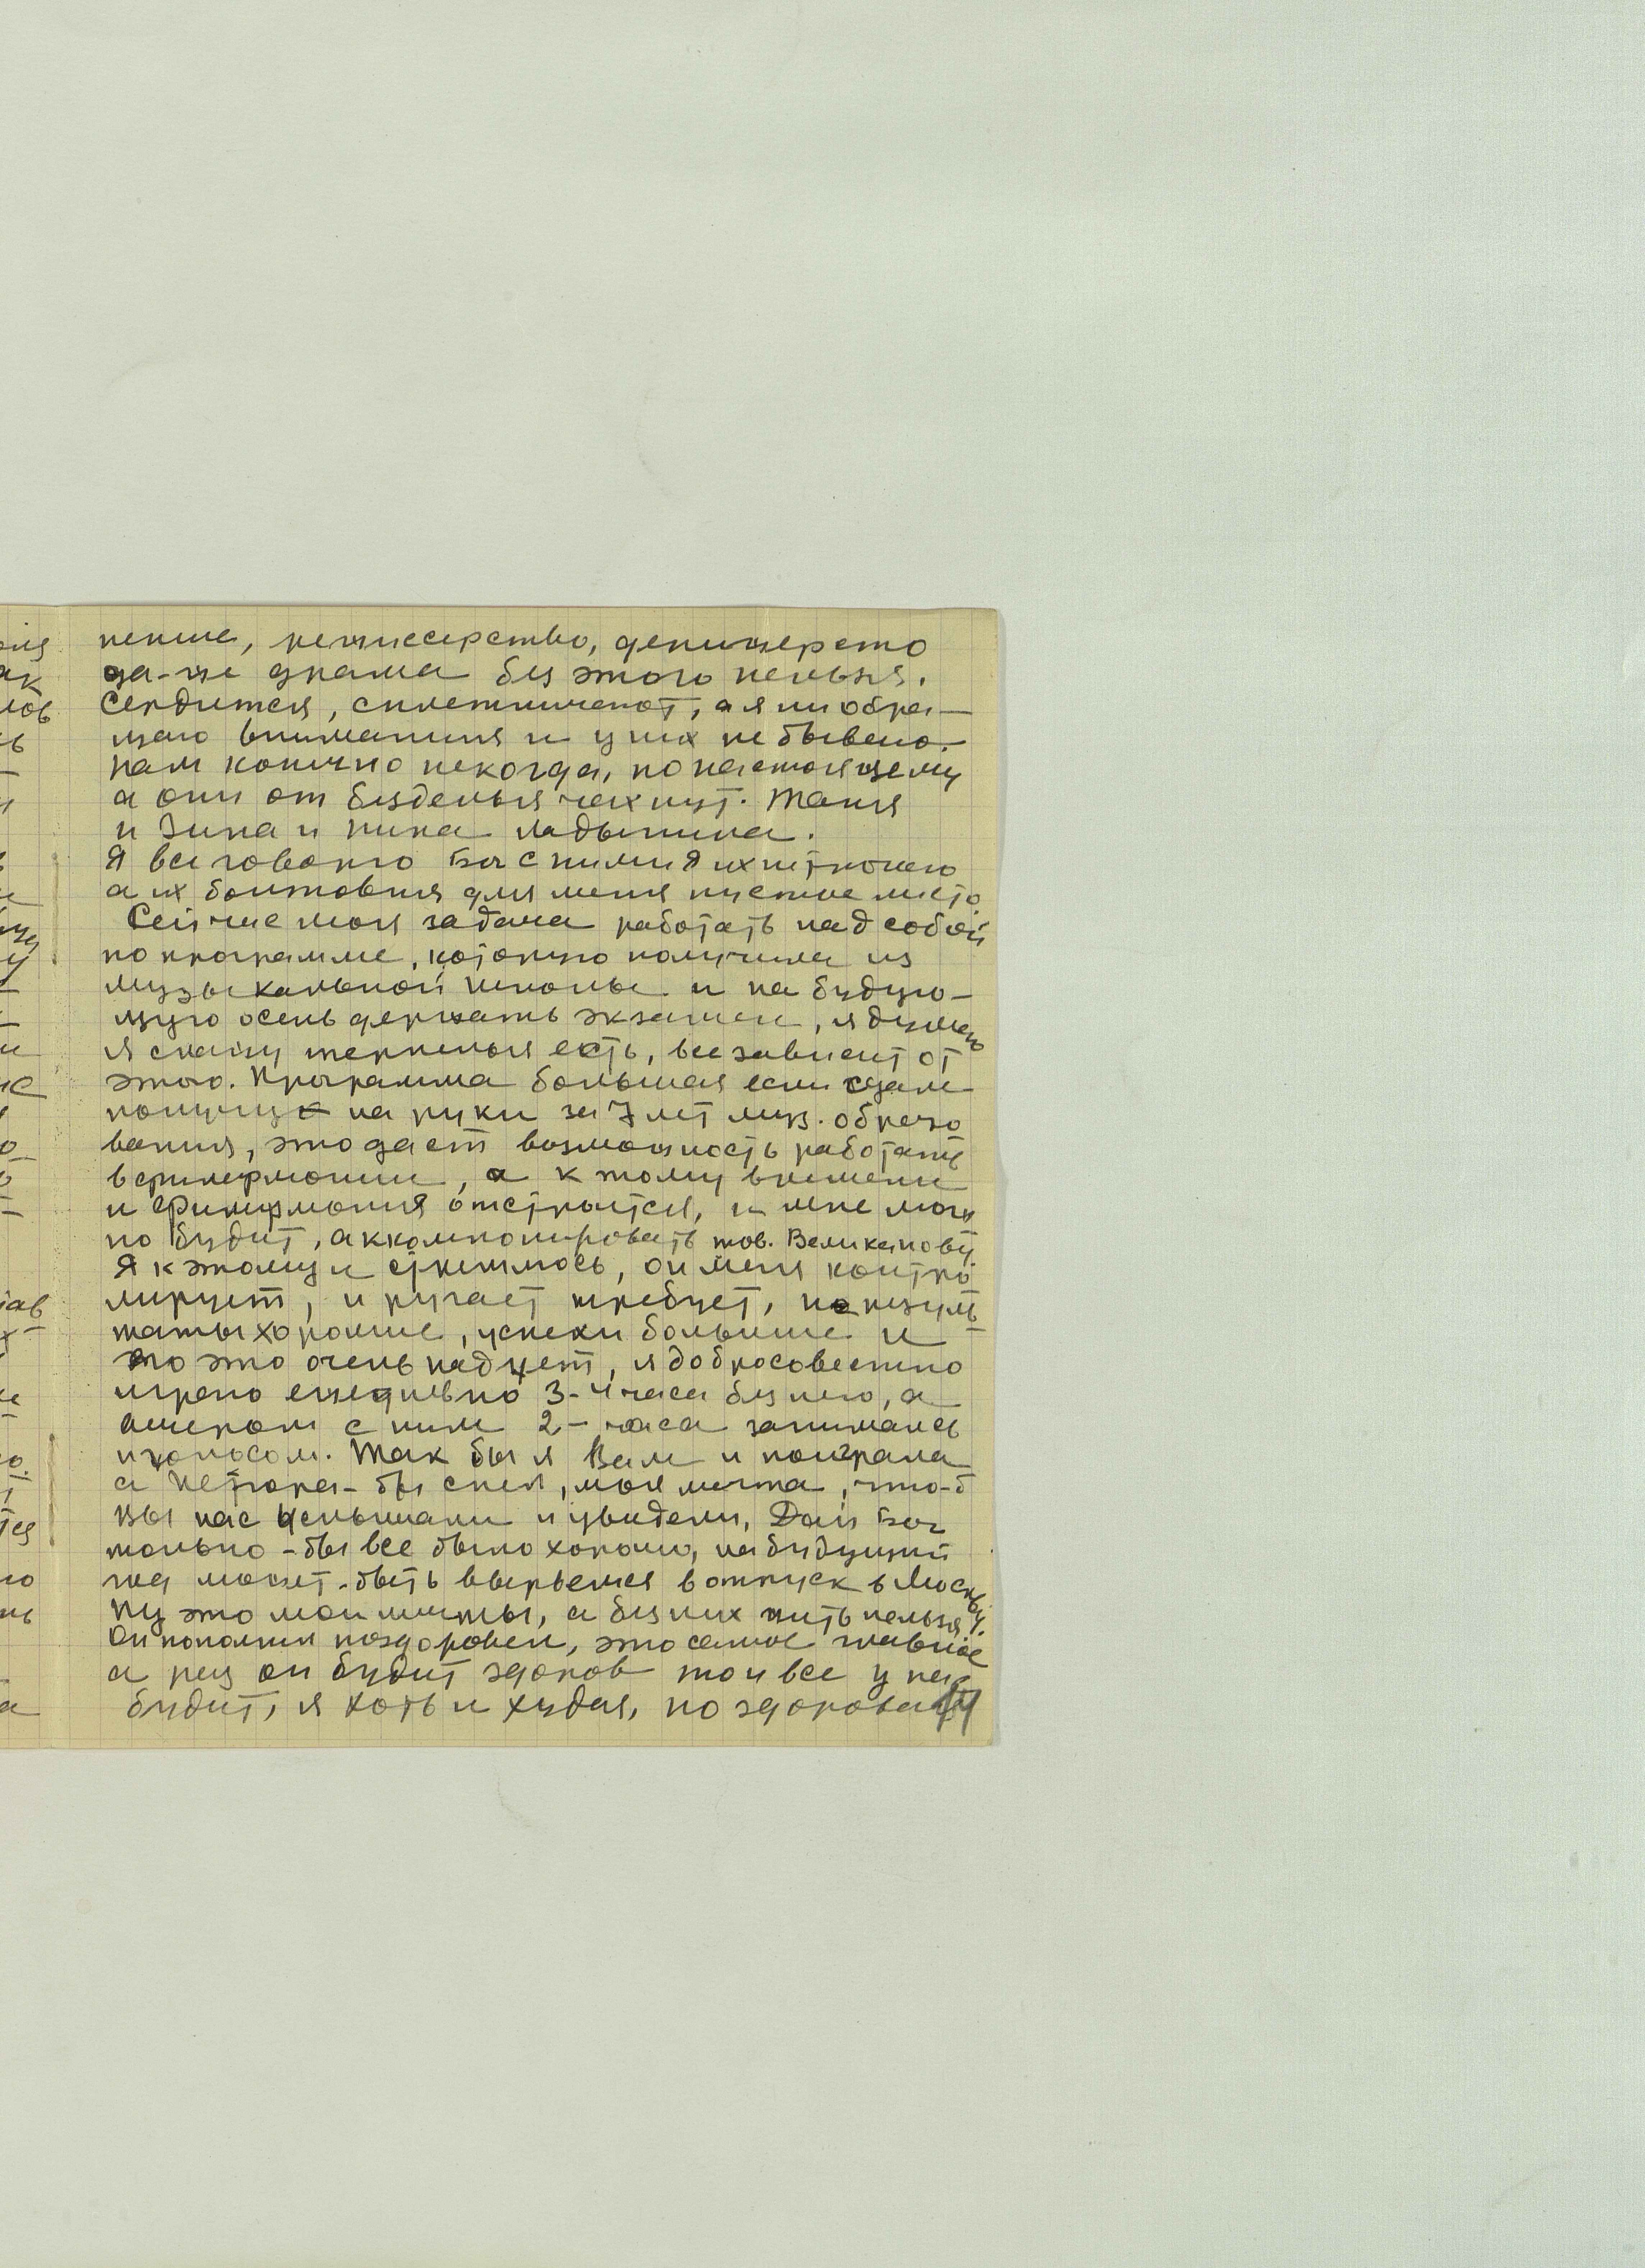 пение, режиссерство, дерижерство
да-же драма без этого нельзя.
Сердится, сплетничают, а я ни обра-
щаю внимания и у них не бываю.
нам конечно некогда, по настоящему
а они от безделья чахнут. Таня
и Зина и Нина Ладынина.
Я все говорю Бог с ними я их не трогаю
а их болтовня для меня пустое место
Сейчас моя задача работать над собой
по программе, которую получила из
музыкальной школы и на будую-
щую осень держать экзамен, я думаю
я скажу терпенья есть, все зависит от
этого. Программа большая если сдам
получу на руки за 7 лет муз. образо
вания, это даст возможность работать
в филармонии, а к тому времени
и филармония отстроится, и мне мож
но будит, аккомпонировать тов. Великанову
Я к этому и стремлюсь, он меня контро
лирует, и ругает требует, но резуль
таты хорошие, успехи большие и
это очень радует, я добросовестно
играю ежедневно 3-4 часа без него, а
вечером с ним 2-часа занимаюсь
и голосом. Так бы я Вам и поиграла
а Петюра-бы спел, моя мечта, что-б
вы нас услышали и увидели, Дай Бог
только-бы все было хорошо, на будущий
год может-быть вырвемся в отпуск в Москву.
Ну это мои мечты, а без них жить нельзя
Он пополнел поздоровел, это самое главное
а раз он будит здоров то и все у нас
будит, я хоть и худая, но здоровая